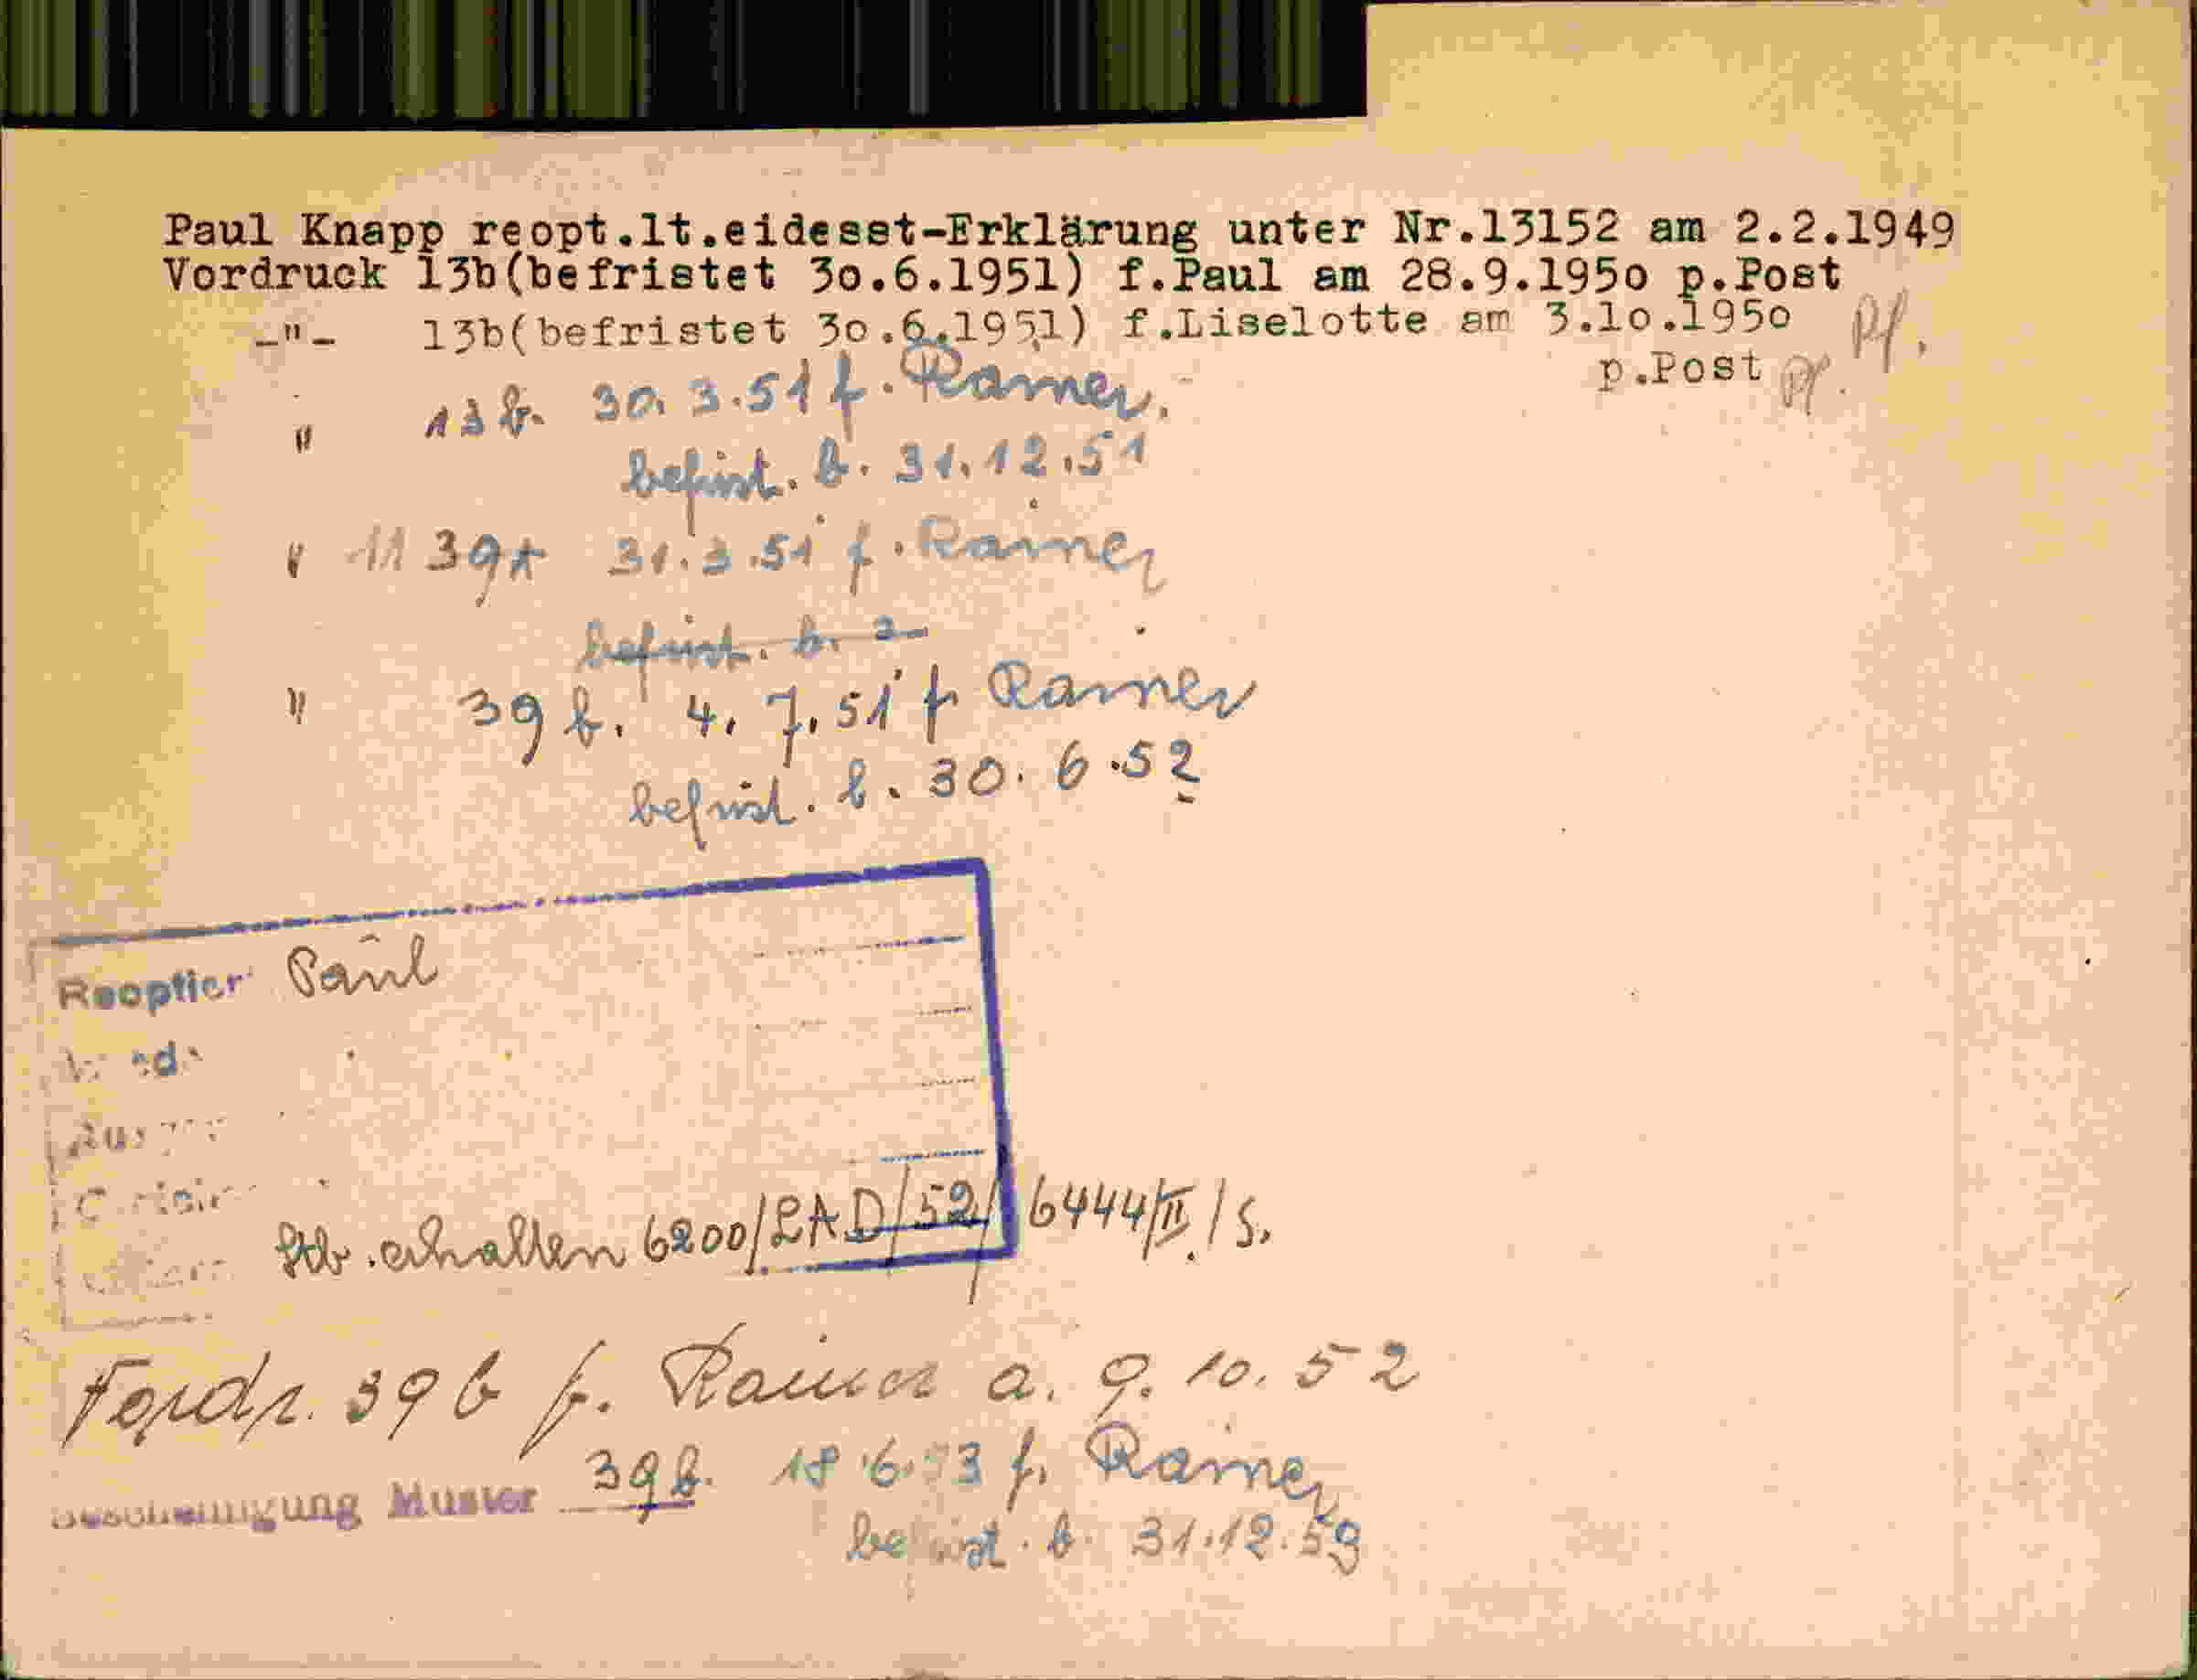 Paul Knapp reopt.lt.eidesst-Erklärung unter Nr.13152 am 2.2.1949
Vordruck 13b(befristet 30.6.1951) f.Paul am 28.9.1950 p.Post
-"- 13b(befristet 30.6.1951) f.Liselotte am 3.10.1950
p.Post
" 13b. 30.3.51 f. Rainer.
befrist. b. 31.12.51
" 39a 31.3.51 f. Rainer
befrist. b.
" 39 b. 4.7.51 f. Rainer
befrist. b. 30.6.52
Reoptier Paul
erhalten 6200/LAD/52/ 6444/II./S.
39b f. Rainer a. 9.10.52
Muster 39b. 18.6.53 f. Rainer
befrist. b. 31.12.59